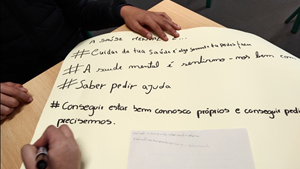 A SAÚDE MENTAL É...
# Cuidar da tua saúde é algo
# A saude mental é sentirmo-nos bem com
# Saber pedir ajuda
# Conseguir estar bem connosco próprios e conseguir pedi
precisarmos.